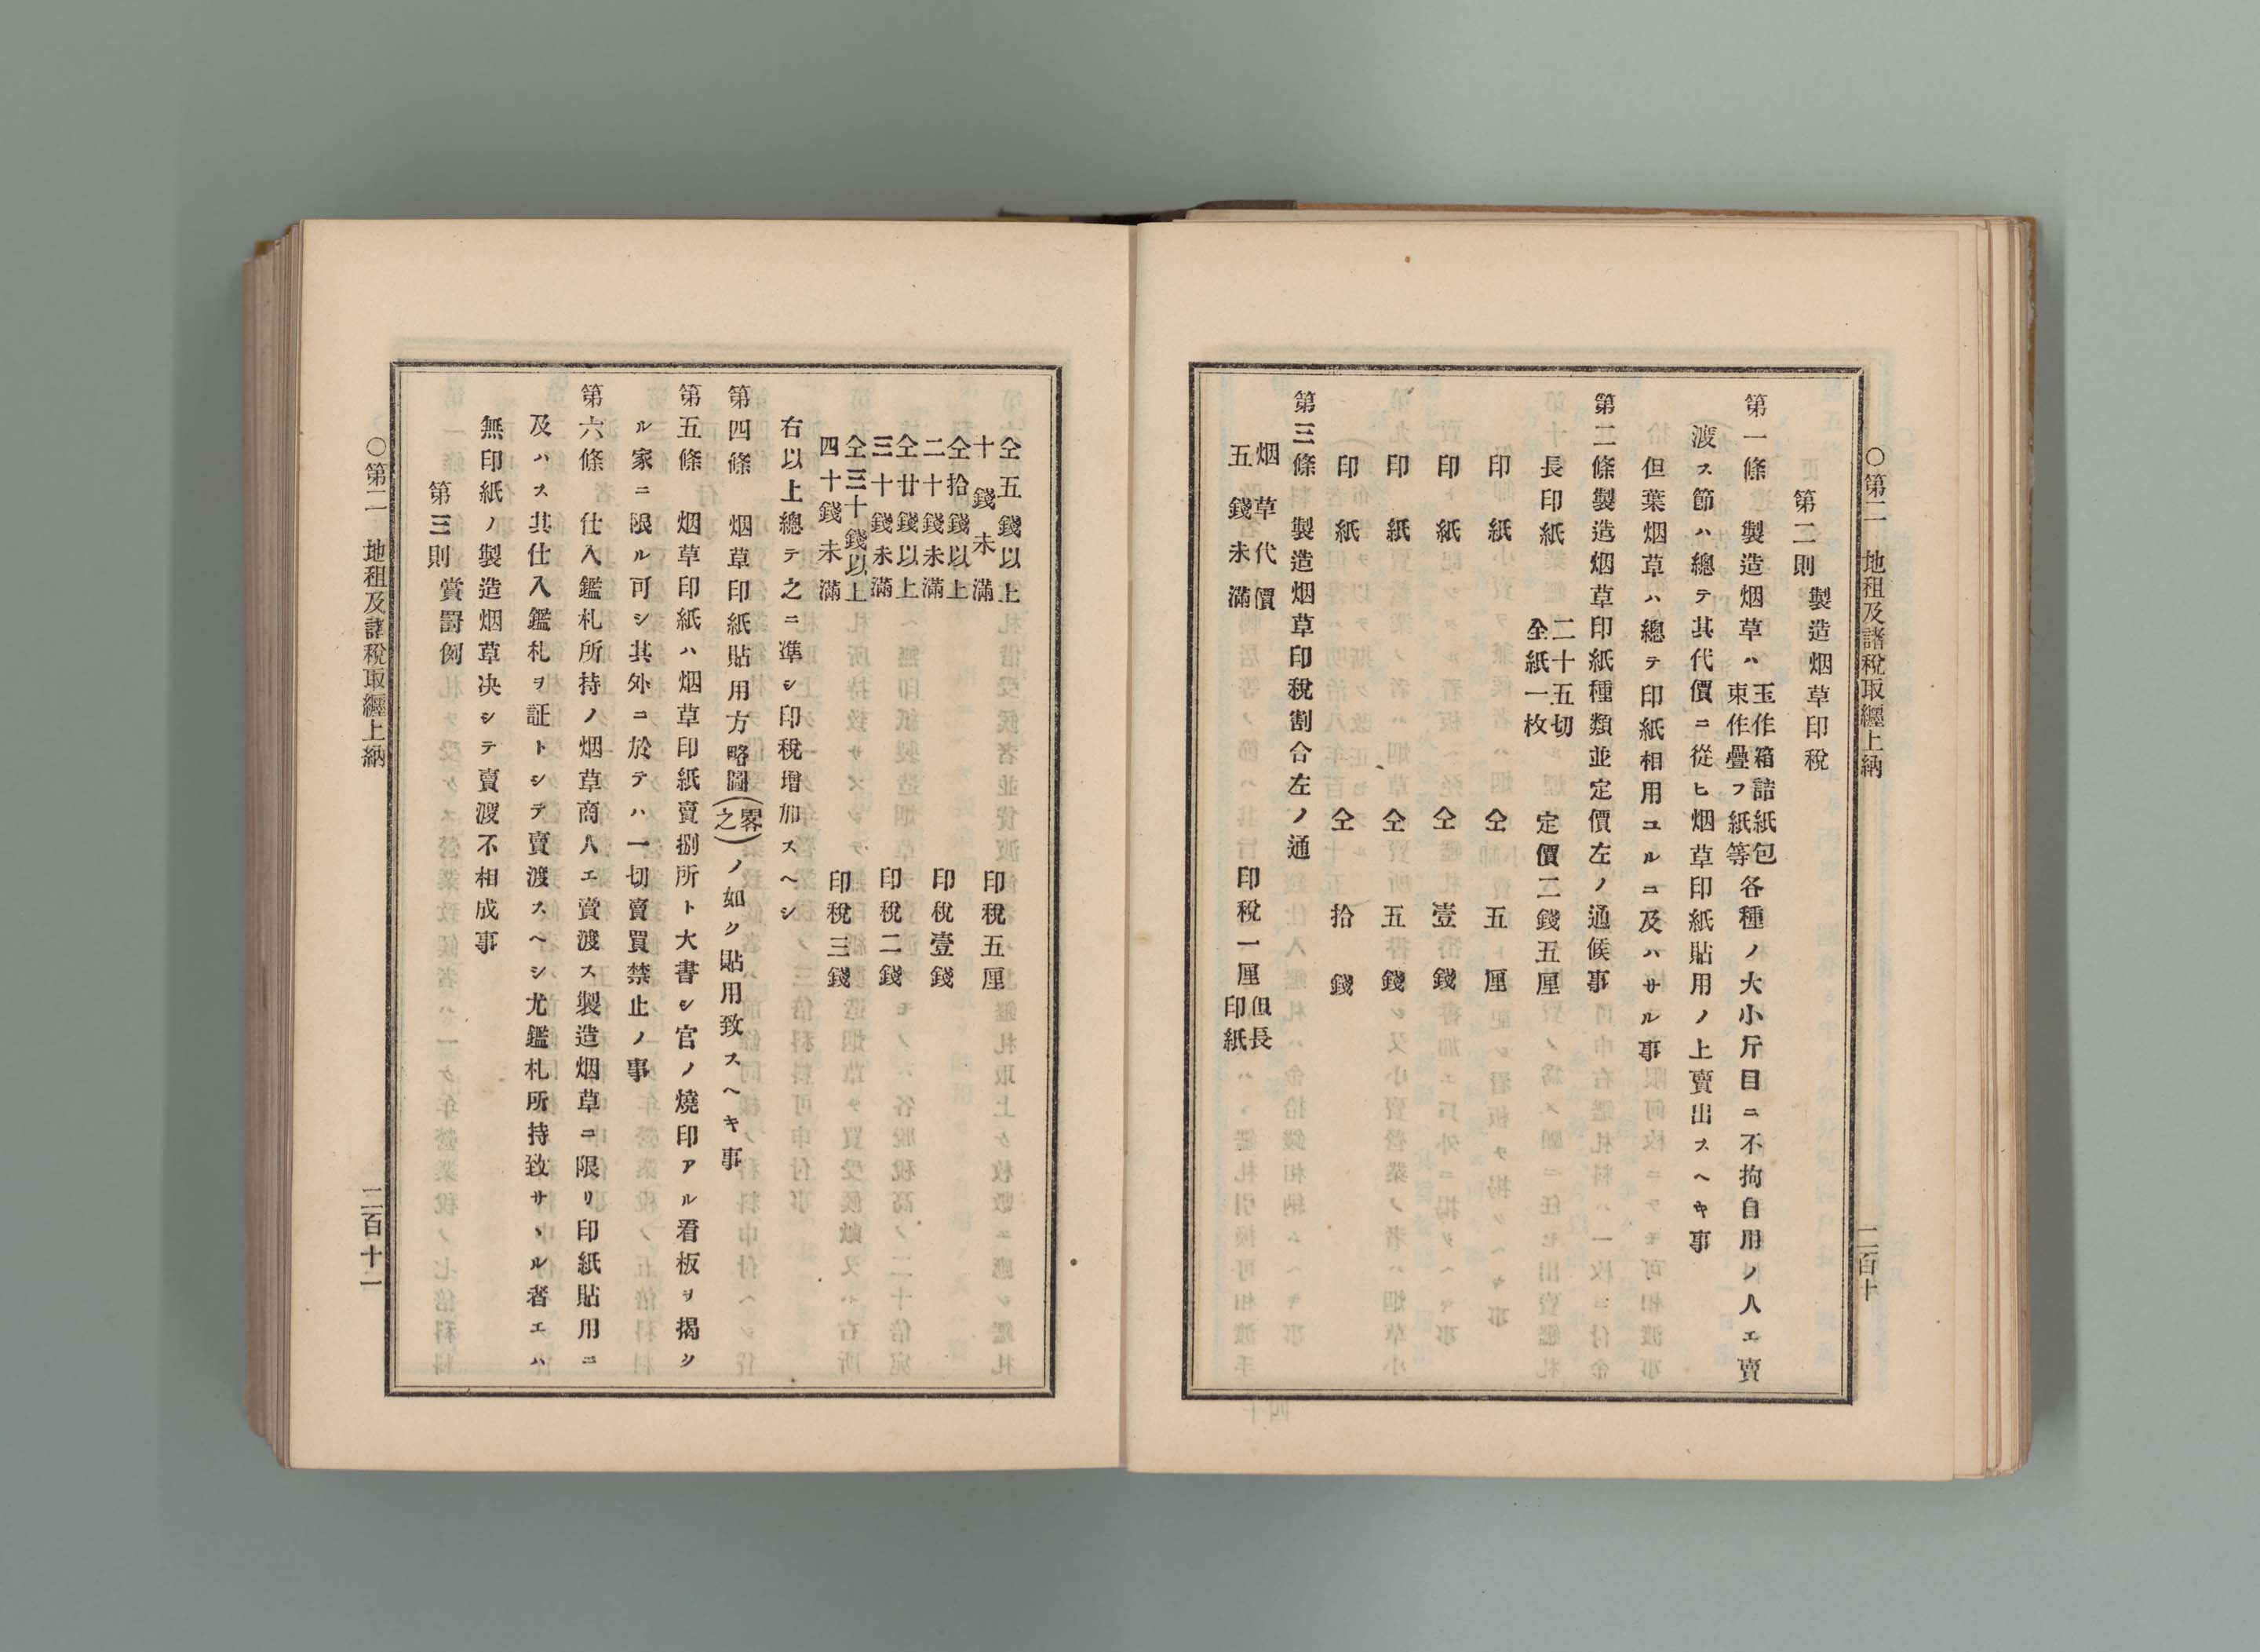 ○第二　地租及諸稅取纒上納
二百十
第二則　製造烟草印稅
第一條　製造烟草ハ玉作箱詰紙包束作疊フ紙等各種ノ大小斤目ニ不拘自用ノ人エ賣
渡ス節ハ總テ其代價ニ從ヒ烟草印紙貼用ノ上賣出スヘキ事
但葉烟草ハ總テ印紙相用ユルニ及ハサル事
第二條　製造烟草印紙種類並定價左ノ通候事
長印紙　二十五切仝紙一枚　定價二錢五厘
印紙　仝　五厘
印紙　仝　壹錢
印紙　仝　五錢
印紙　仝　拾錢
第三條　製造烟草印稅割合左ノ通
烟草代價五錢未滿　印稅一厘但長印紙
仝五錢以上十錢未滿　印稅五厘
仝拾錢以上二十錢未滿　印稅壹錢
仝廿錢以上三十錢未滿　印稅二錢
仝三十錢以上四十錢未滿　印稅三錢
右以上總テ之ニ凖シ印稅增加スヘシ
第四條　烟草印紙貼用方略圖（畧之）ノ如ク貼用致スヘキ事
第五條　烟草印紙ハ烟草印紙賣捌所ト大書シ官ノ燒印アル看板ヲ揭ク
ル家ニ限ル可シ其外ニ於テハ一切賣買禁止ノ事
第六條　仕入鑑札所持ノ烟草商人エ賣渡ス製造烟草ニ限リ印紙貼用ニ
及ハス其仕入鑑札ヲ証トシテ賣渡スヘシ尤鑑札所持致サヽル者エハ
無印紙ノ製造烟草决シテ賣渡不相成事
第三則　賞罸例
○第二　地租及諸稅取纒上納
二百十一